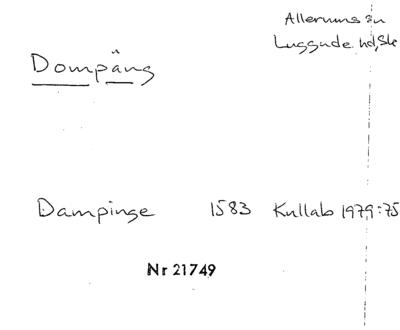 Allerums sn
Luggude hd, Sk
Dompäng
Dampinge 1583 Kullab 1979:75
Nr 21749